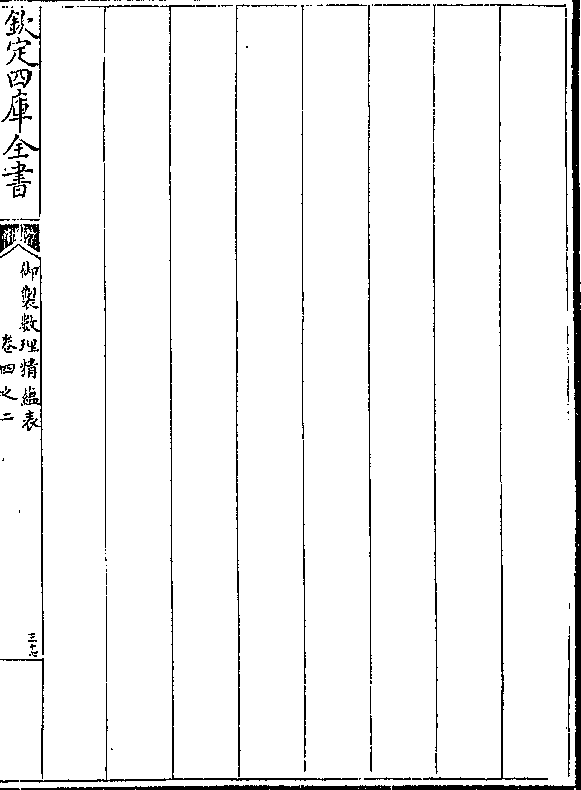 欽定四庫全書
御製數理精蘊表
卷四之二